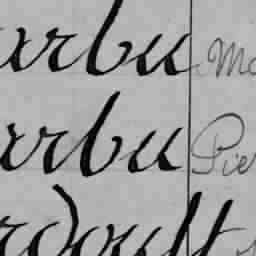 arbu Ma
arbu Pier
rdoult